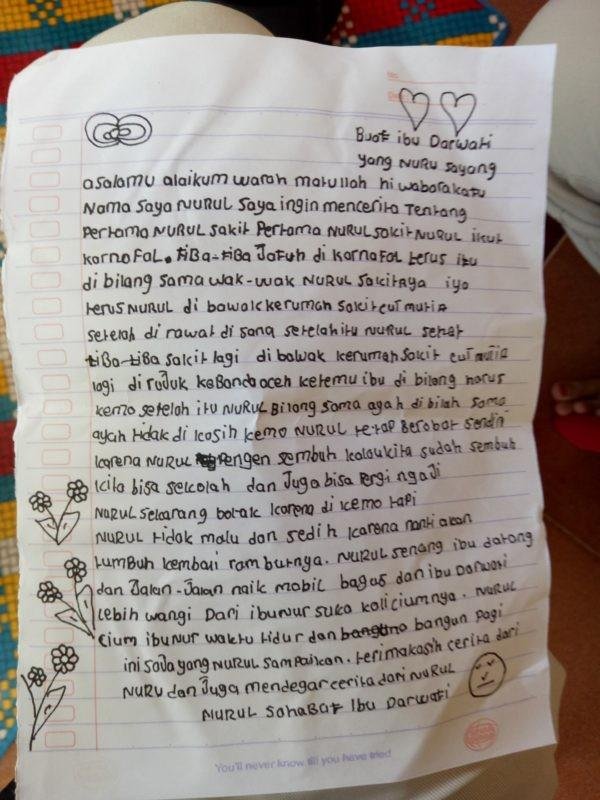 No.
Buat ibu Darwati
yang NURU sayang
asalamu alaikum warah matulloh hi wabarakatu
Nama saya NURUL saya ingin mencerita Tentang
Pertama NURUL sakit Pertama NURUL sakit NURUL ikut
karnoFaL. tiBa-tiBa Jatuh di karnaFal terus itu
di bilang sama wak-wak NURUL sakitnya iyo
terus NURUL di bawak kerumah sakit cut mutia
setelah di rawat di sana setelah itu NURUL sehat
tiBa-tiBa sakit lagi di bawak kerumah sakit cut mutia
lagi di rujuk keBanda aceh ketemu ibu di bilang harus
kemo setelah itu NURUL Bilang sama ayah di bilah sama
ayah tidak di kasih kemo NURUL tetap Berobat sendiri
karena NURUL Pengen sembuh kalau kita sudah sembuh
kita bisa sekolah dan Juga bisa Pergi ngaji
NURUL sekarang botak karena di kemo tapi
NURUL tidak malu dan sedih karena nanti akan
tumbuh kembali ramburnya. NURUL senang ibu datang
dan Jalan-Jalan naik mobil bagus dan ibu Darwati
Lebih wangi Dari ibunur suka kali ciumnya. NURUL
cium ibunur waktu tidur dan bangun pagi
ini saJa yang NURUL sampaikan. terimakasih cerita dari
NURU dan Juga mendegar cerita dari NURUL
NURUL SahaBat Ibu Darwati
You'll never know till you have tried